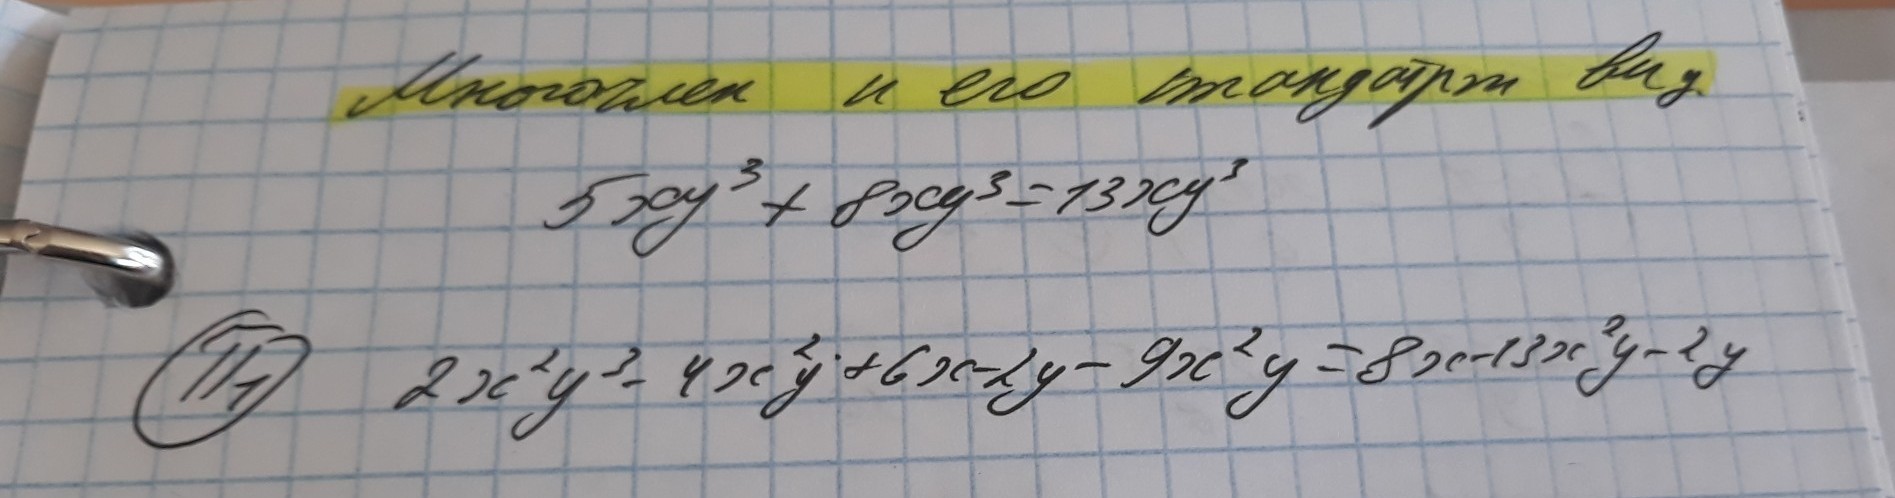 Многочлен и его стандарт вид
5xy³ + 8xy³ = 13xy³
П1 2x²y³ - 4x²y + 6x - 2y - 9x²y = 8x - 13x²y - 2y